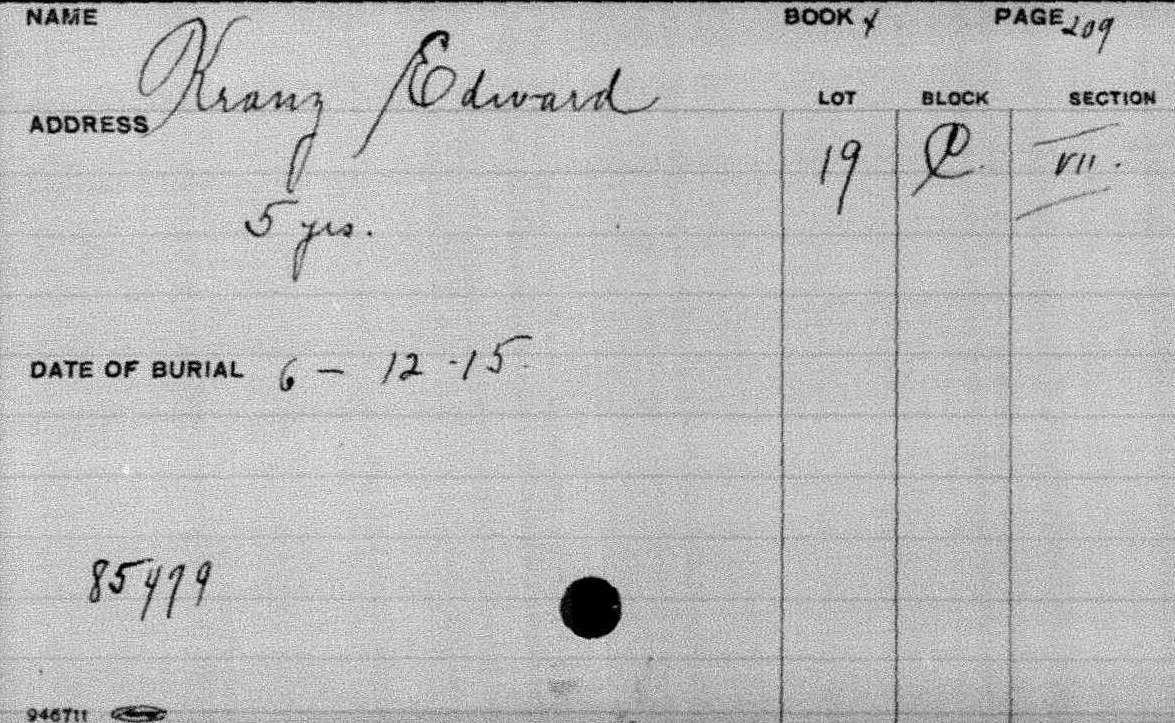 NAME Kranz Edward BOOK 4 PAGE 209
ADDRESS LOT BLOCK SECTION
19 VII.
5 yrs.
DATE OF BURIAL 6 - 12 - 15
85479
946711